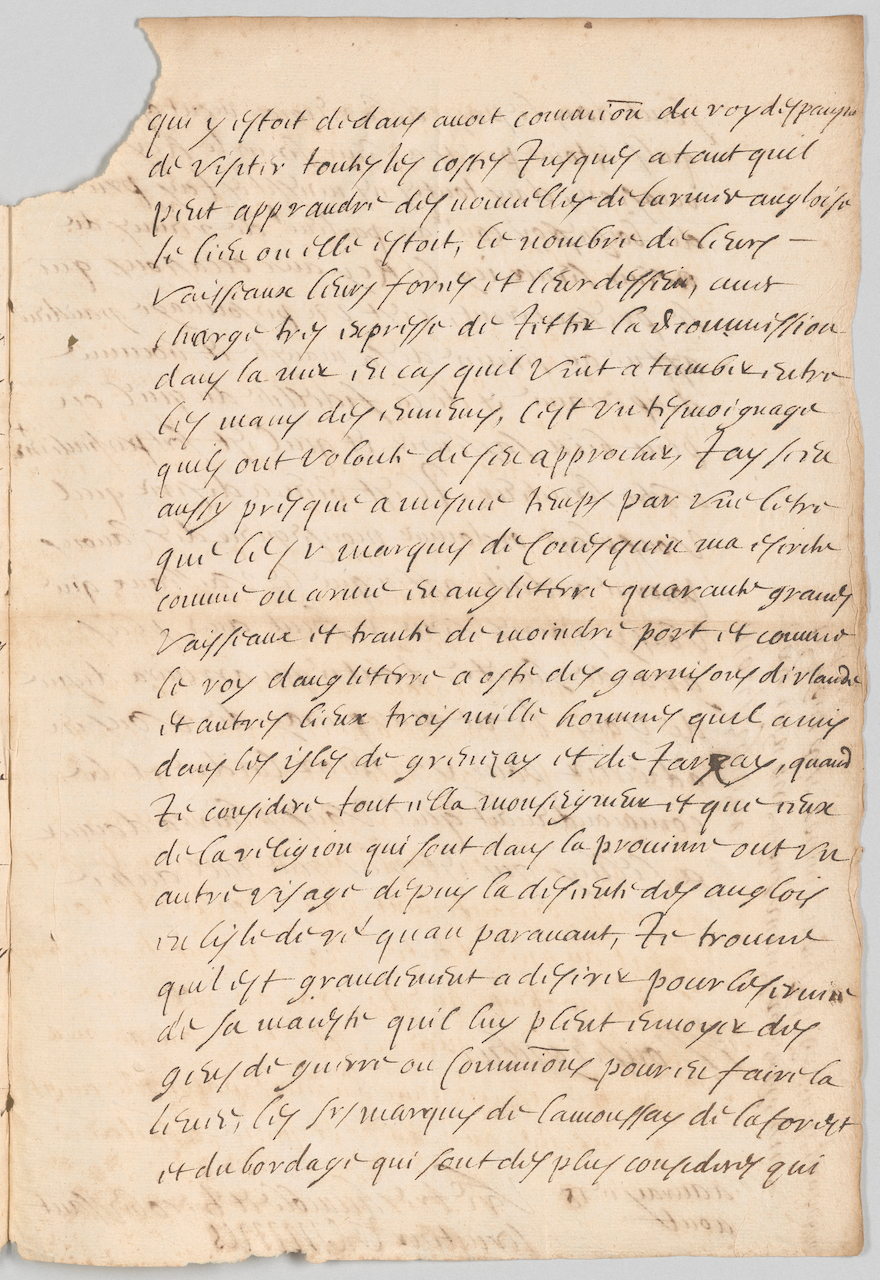 qui y estoit dedans avoit commiõn du roy despaigne
de visiter toutes les costes Jusques a tant quil
peut apprandre des nouvelles de larmee angloise
le lieu ou elle estoit, le nombre de leurs –
vaisseaux leurs forces et leur dessein, avec
charge tres expresse de Jetter la commission
dans la mer en cas quil vint a tumber entre
les mains des ennemys, cest un tesmoignage
quils ont volonte de sen approcher, Jay sceu
aussy presque a mesme temps par une lettre
que le sr marquis de Couesquin ma escrite
comme on arme en angleterre quarante grands
vaisseaux et trante de moindre port et comme
le roy dangleterre a oste des garnisons dirlande
et autres lieux trois mille hommes quil a mis
dans les isles de grenezay et de Jarzay, quand
Je considere tout cella monseigneur et que ceux
de la religion qui sont dans la province ont un
autre visage depuis la descente des anglois
en lisle de ré quau paravant, Je trouve
quil est grandement a desirer pour le service
de sa majeste quil luy pleut envoyer des
gens de guerre ou Commiõns pour en faire la
levee, les srs marquis de lamoussay de la forest
et du bordage qui sont des plus consideres qui